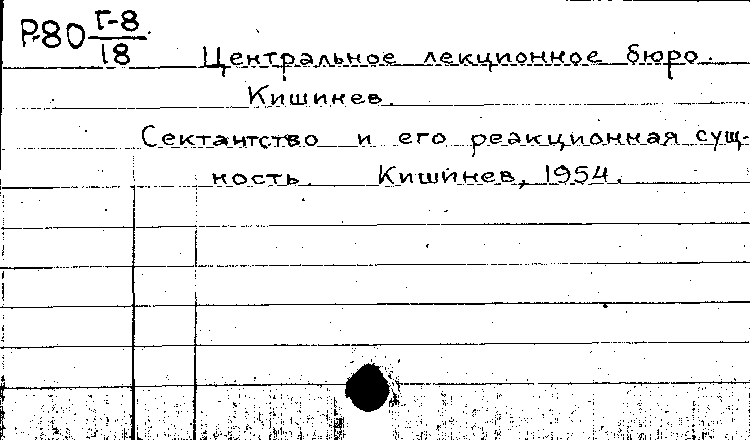 Р-80 Г-8
18
Центральное лекционное бюро.
Кишинев.
Сектантство и его реакционная сущ-
ность. Кишинев, 1954.